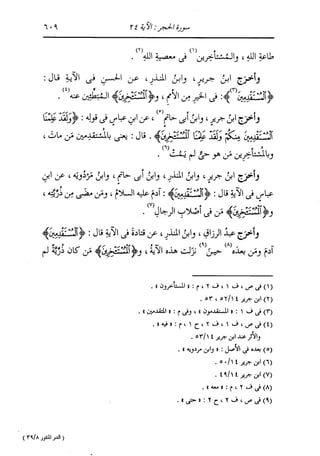 سورة الحجر : الآية ٢٤
٦٠٩
طاعةِ اللهِ ، والمُسْتأخرين(١) فى معصيةِ اللهِ(٢) .
وأخرَج ابنُ جريرٍ ، وابنُ المنذرِ ، عن الحسنِ فى الآيةِ قال :
﴿ٱلْمُسْتَقْدِمِينَ﴾(٣) : فى الخيرِ من الأممِ ، و﴿ٱلْمُسْتَـْٔخِرِينَ﴾ المُبْطِئين عنه(٤) .
وأخرَج ابنُ جريرٍ ، وابنُ أبى حاتمٍ(٥) ، عن ابنِ عباسٍ فى قولِه : ﴿وَلَقَدْ عَلِمْنَا
ٱلْمُسْتَقْدِمِينَ مِنكُمْ وَلَقَدْ عَلِمْنَا ٱلْمُسْتَـْٔخِرِينَ﴾ . قال : يعنى بالمستقدمين من مات ،
وبالمستأخرين من هو حىٌّ لم يَمُتْ(٦) .
وأخرَج ابنُ جريرٍ ، وابنُ المنذرِ ، وابنُ أبى حاتمٍ ، وابنُ مَرْدُويَه ، عن ابنِ
عباسٍ فى الآيةِ قال : ﴿ٱلْمُسْتَقْدِمِينَ﴾ : آدمُ عليه السلامُ ، ومن مضَى من ذُرِّيَّتِه ،
و﴿ٱلْمُسْتَـْٔخِرِينَ﴾ : من فى أصلابِ الرجالِ(٧) .
وأخرَج عبدُ الرزاقِ ، وابنُ المنذرِ ، عن قتادةَ فى الآيةِ قال : ﴿ٱلْمُسْتَقْدِمِينَ﴾
آدمُ ومَن بعدَه(٨) حينَ(٩) نزَلت هذه الآيةُ ، و﴿ٱلْمُسْتَـْٔخِرِينَ﴾ مَن كان ذُرِّيَّةً لم
(١) فى ص ، ف ١ ، ف ٢ ، م : « المستأخرون » .
(٢) ابن جرير ١٤/ ٥٢، ٥٣ .
(٣) فى ف ١ : « المستقدمون » ، وفى م : « المتقدمين » .
(٤) فى ص ، ف ١ ، ف ٢ ، ح ١ ، م : « فيه » .
والأثر عند ابن جرير ١٤/ ٥٣ .
(٥) بعده فى الأصل : « وابن مردويه » .
(٦) ابن جرير ١٤/ ٥٠ .
(٧) ابن جرير ١٤/ ٤٩ .
(٨) فى ف ٢ ، م : « معه » .
(٩) فى ص ، ف ٢ ، ح ٢ : « حتى » .
( الدر المنثور ٣٩/٨ )